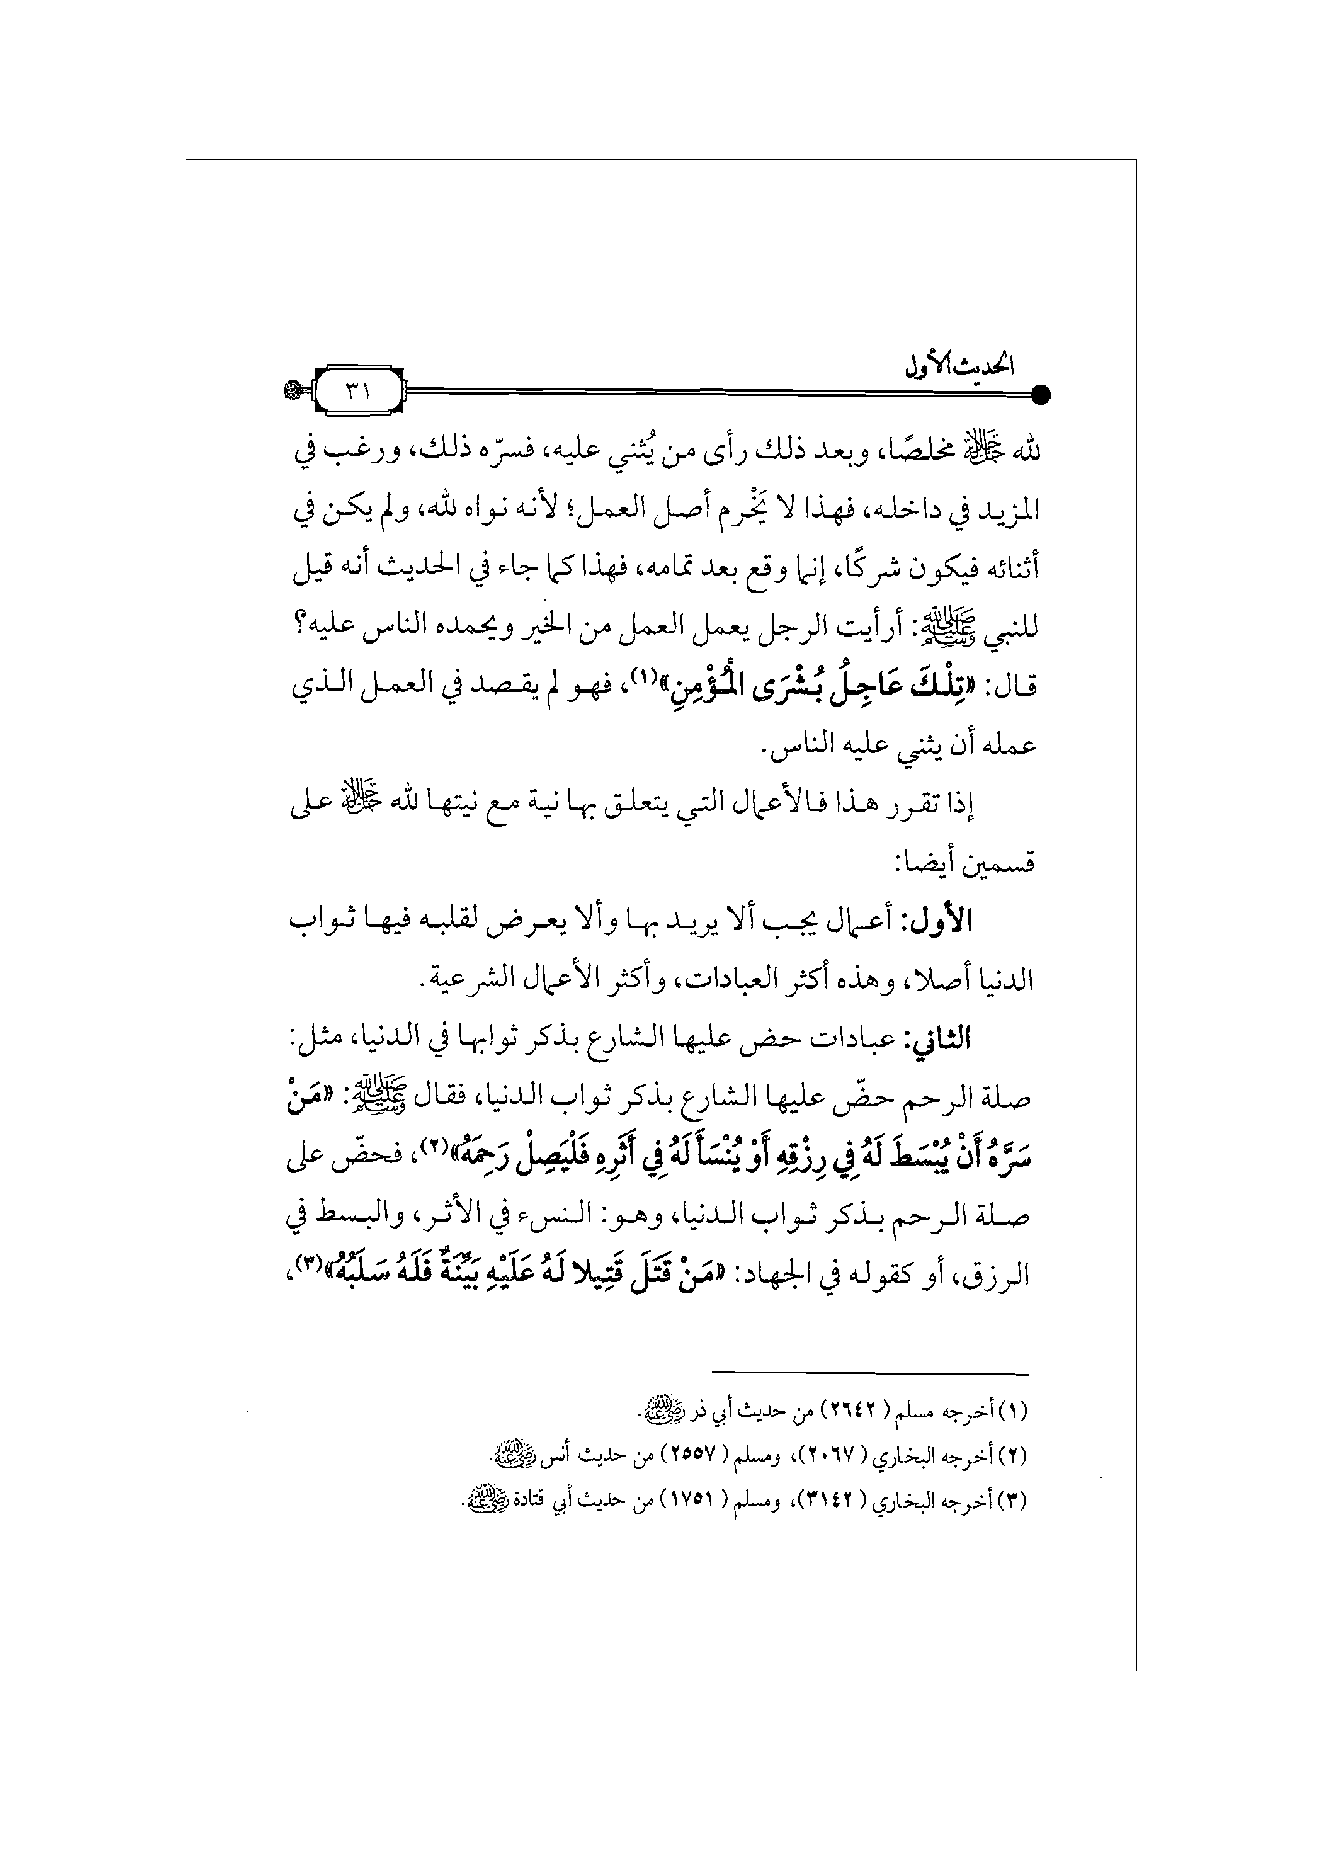 الحديث الأول
٣١
لله ﷻ مخلصًا، وبعد ذلك رأى من يُثني عليه، فسرّه ذلك، ورغب في
المزيد في داخله، فهذا لا يَخْرم أصل العمل؛ لأنه نواه لله، ولم يكن في
أثنائه فيكون شركًا، إنما وقع بعد تمامه، فهذا كما جاء في الحديث أنه قيل
للنبي ﷺ: أرأيت الرجل يعمل العمل من الخير ويحمده الناس عليه؟
قال: «تِلْكَ عَاجِلُ بُشْرَى الْمُؤْمِنِ»(١)، فهو لم يقصد في العمل الذي
عمله أن يثني عليه الناس.
إذا تقرر هذا فالأعمال التي يتعلق بها نية مع نيتها لله ﷻ على
قسمين أيضا:
الأول: أعمال يجب ألا يريد بها وألا يعرض لقلبه فيها ثواب
الدنيا أصلا، وهذه أكثر العبادات، وأكثر الأعمال الشرعية.
الثاني: عبادات حض عليها الشارع بذكر ثوابها في الدنيا، مثل:
صلة الرحم حضّ عليها الشارع بذكر ثواب الدنيا، فقال ﷺ: «مَنْ
سَرَّهُ أَنْ يُبْسَطَ لَهُ فِي رِزْقِهِ أَوْ يُنْسَأَ لَهُ فِي أَثَرِهِ فَلْيَصِلْ رَحِمَهُ»(٢)، فحضّ على
صلة الرحم بذكر ثواب الدنيا، وهو: النسء في الأثر، والبسط في
الرزق، أو كقوله في الجهاد: «مَنْ قَتَلَ قَتِيلا لَهُ عَلَيْهِ بَيِّنَةٌ فَلَهُ سَلَبُهُ»(٣)،
(١) أخرجه مسلم (٢٦٤٢) من حديث أبي ذر رضي الله عنه.
(٢) أخرجه البخاري (٢٠٦٧)، ومسلم (٢٥٥٧) من حديث أنس رضي الله عنه.
(٣) أخرجه البخاري (٣١٤٢)، ومسلم (١٧٥١) من حديث أبي قتادة رضي الله عنه.